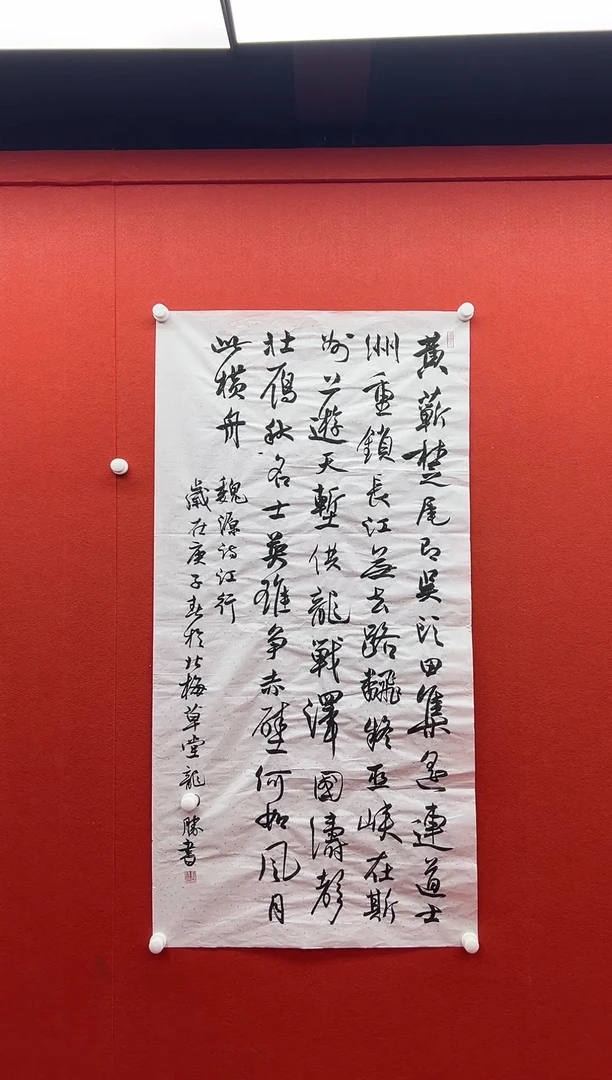 黃蘄楚尾即吳頭田集遥連道士
洲重鎖長江無去路翻疑巫峽在斯
遊天塹供龍戰澤國濤聲
壮雁秋名士英雄争赤壁何如風月
此横舟
魏源詩江行
歲在庚子春於北梅草堂龍勝書